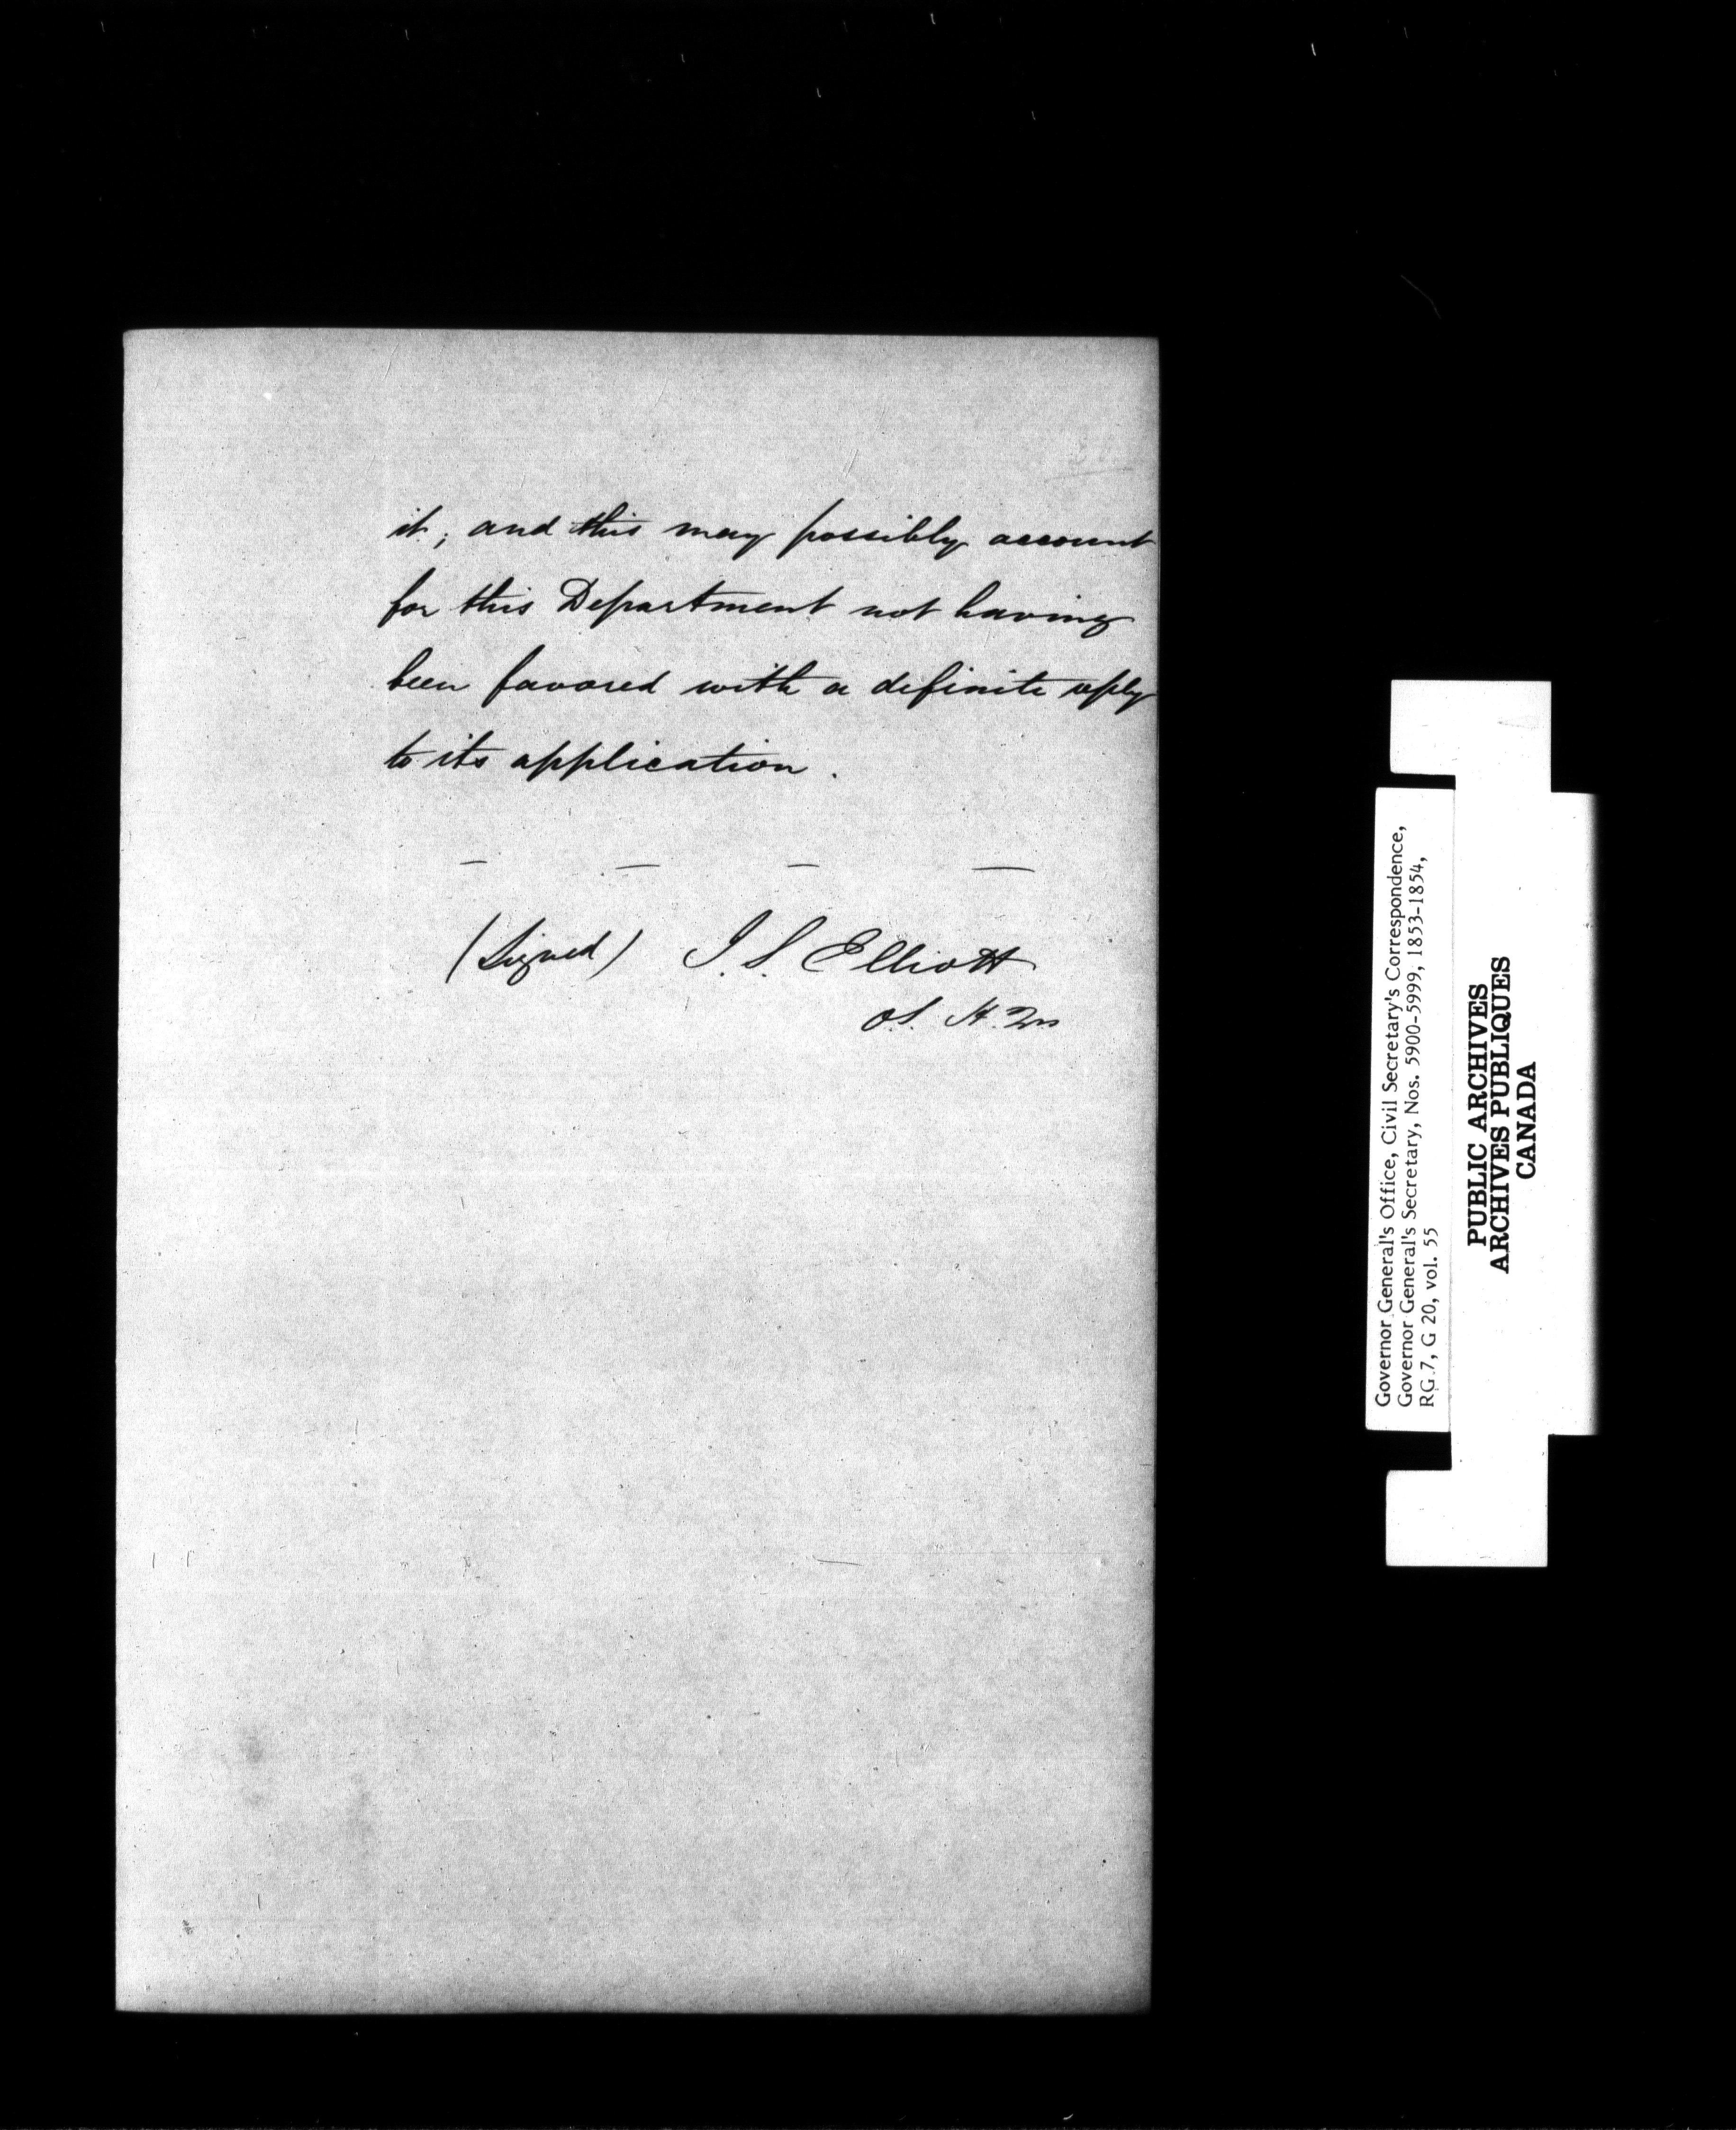 it; and this may possibly account
for this Department not having
been favored with a definite reply
to its application.
(Signed) J. S. Elliott
Governor General's Office, Civil Secretary's Correspondence,
Governor General's Secretary, Nos. 5900-5999, 1853-1854,
RG 7, G 20, vol. 55
PUBLIC ARCHIVES
ARCHIVES PUBLIQUES
CANADA